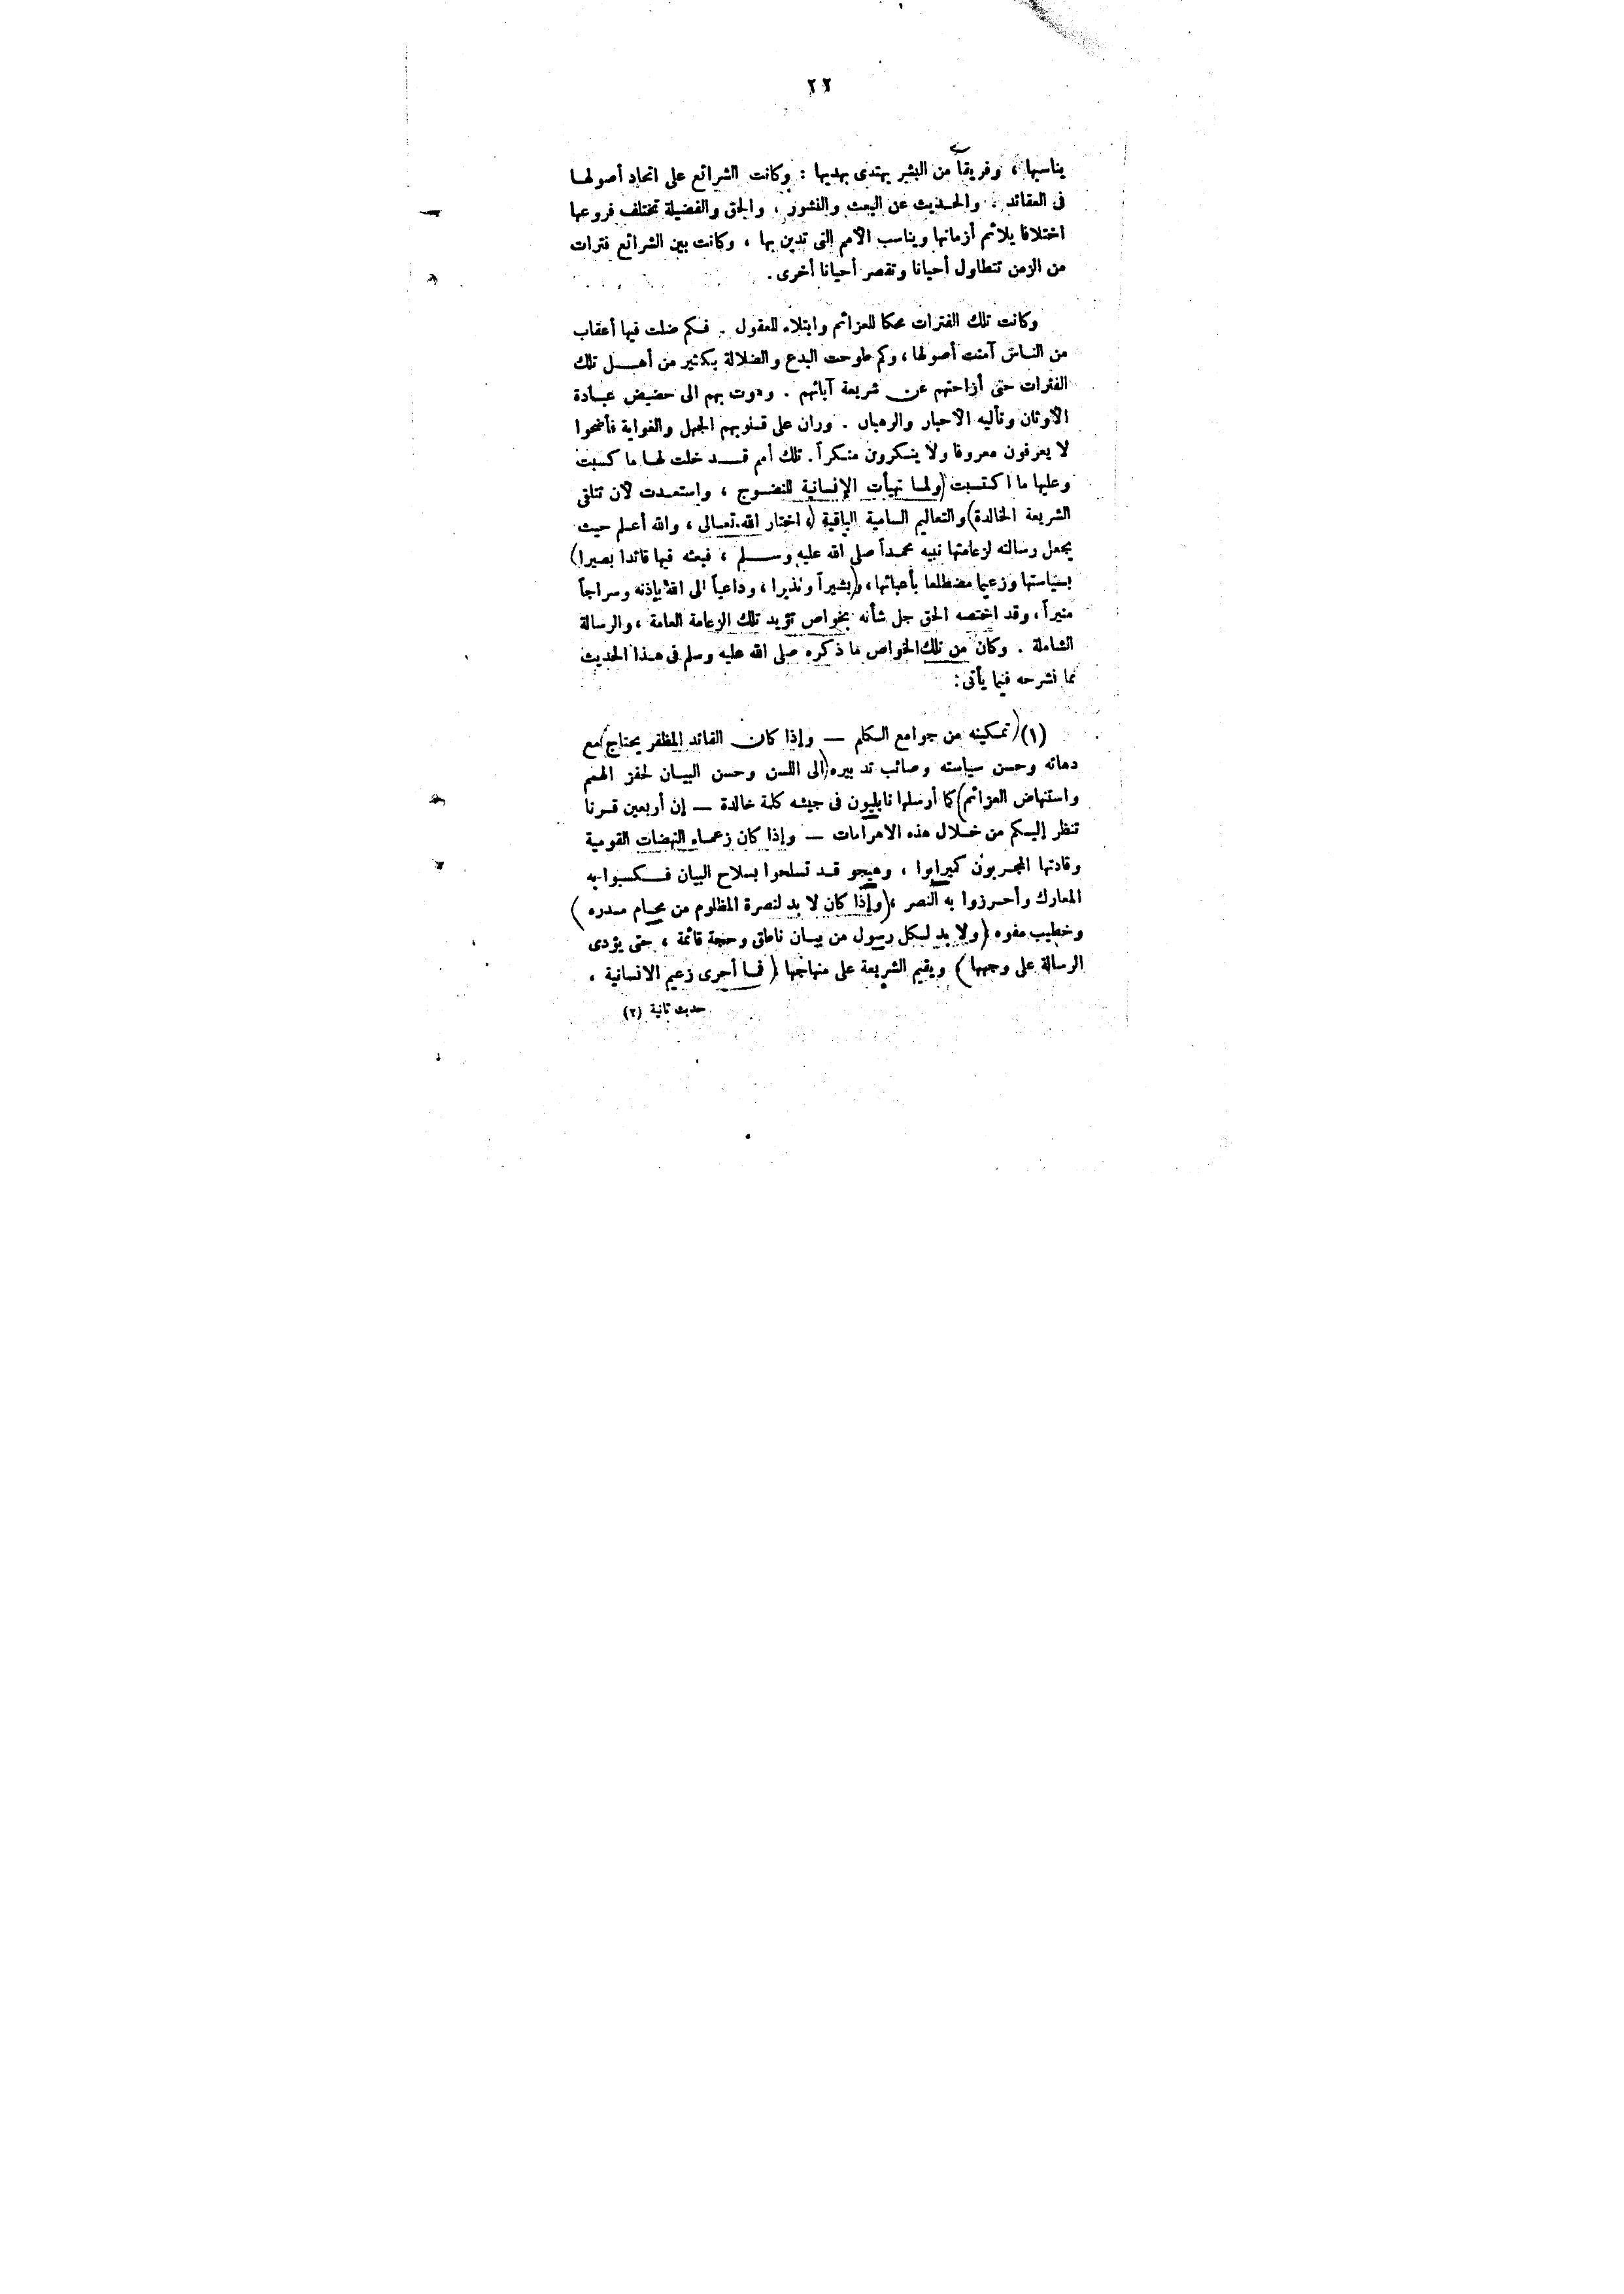 ٢٢
يناسبها ، وفريقاً من البشر يهتدى بهديها : وكانت الشرائع على اتحاد أصولها
فى العقائد . والحديث عن البعث والنشور . والحق والفضيلة تختلف فروعها
اختلافا يلائم أزمانها ويناسب الأمم التى تدين بها ، وكانت بين الشرائع فترات
من الزمن تتطاول أحيانا وتقصر أحيانا أخرى .
وكانت تلك الفترات محكا للعزائم وابتلاء للعقول . فكم ضلت فيها أعقاب
من الناس آمنت أصولها ، وكم طوحت البدع والضلالة بكثير من أهل تلك
الفترات حتى أزاحتهم عن شريعة آبائهم . وهوت بهم الى حضيض عبادة
الأوثان وتأليه الأحبار والرهبان . وران على قلوبهم الجهل والغواية فأضحوا
لا يعرفون معروفا ولا ينكرون منكراً . تلك أمم قد خلت لها ما كسبت
وعليها ما اكتسبت (ولما تهيأت الإنسانية للنضوج ، واستعدت لأن تتلقى
الشريعة الخالدة) والتعاليم السامية الباقية (، اختار الله تعالى ، والله أعلم حيث
يجعل رسالته لزعامتها نبيه محمداً صلى الله عليه وسلم ، فبعثه فيها قائدا بصيرا)
بسياستها وزعيما مضطلعا بأعبائها ، و(بشيراً ونذيرا ، وداعياً الى الله بإذنه وسراجاً
منيراً ، وقد اختصه الحق جل شأنه بخواص تؤيد تلك الزعامة العامة ، والرسالة
الشاملة . وكان من تلك الخواص ما ذكره صلى الله عليه وسلم فى هذا الحديث
مما نشرحه فيما يأتى :
(١) (تمكينه من جوامع الكلم — وإذا كان القائد المظفر يحتاج) مع
دهائه وحسن سياسته وصائب تدبيره (الى اللسن وحسن البيان لحفز الهمم
واستنهاض العزائم) كما أرسلها نابليون فى جيشه كلمة خالدة — إن أربعين قرنا
تنظر إليكم من خلال هذه الاهرامات — وإذا كان زعماء النهضات القومية
وقادتها المجربون كميرابوا ، وهيجو قد تسلحوا بسلاح البيان فكسبوا به
المعارك وأحرزوا به النصر ، (وإذا كان لا بد لنصرة المظلوم من محام مدره )
وخطيب مفوه (ولا بد لكل رسول من بيان ناطق وحجة قائمة ، حتى يؤدى
الرسالة على وجهها ) ويقيم الشريعة على منهاجها ( فما أحرى زعيم الانسانية ،
حديث ثانية (٢)